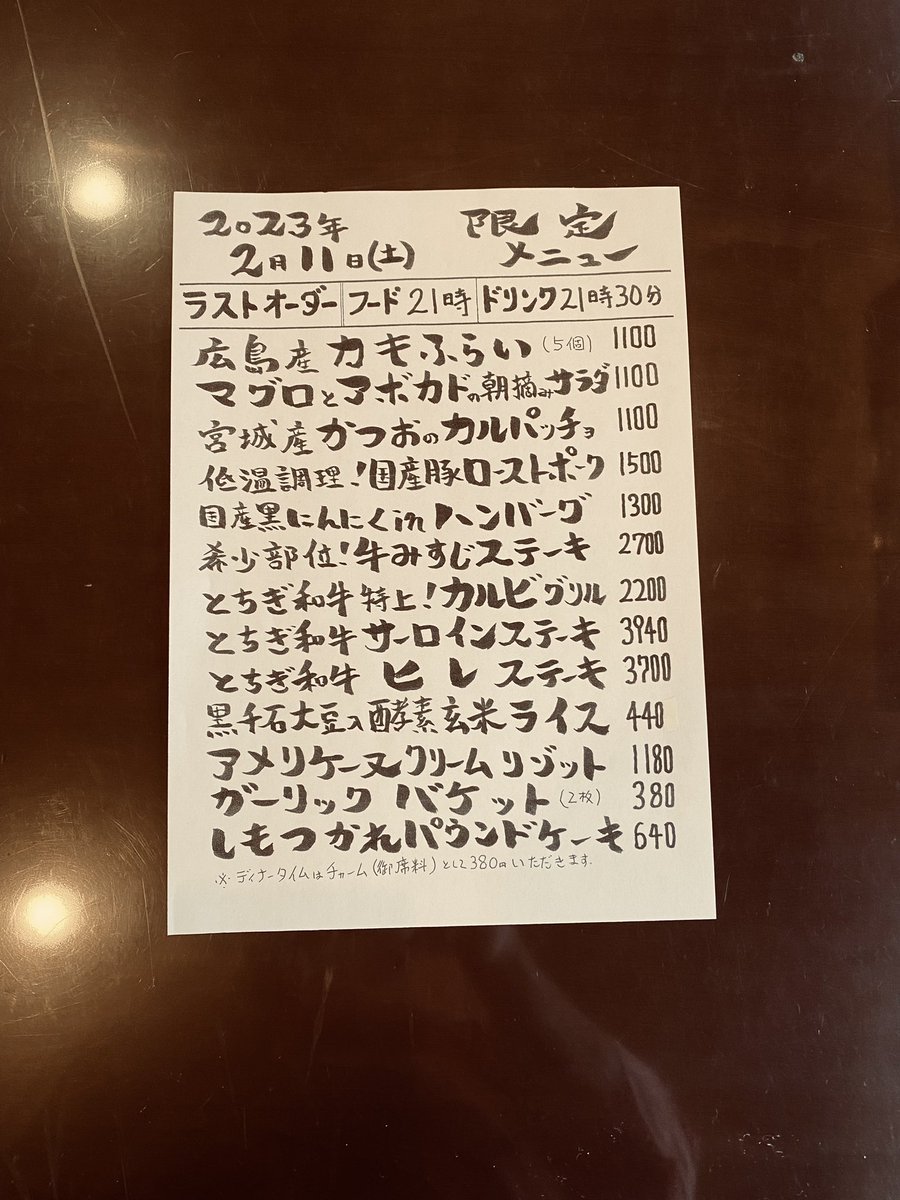 2023年 限定
2月11日(土) メニュー
ラストオーダー フード21時 ドリンク21時30分
広島産カキふらい(5個) 1100
マグロとアボカドの朝摘みサラダ 1100
宮城産かつおのカルパッチョ 1100
低温調理!国産豚ローストポーク 1500
国産黒にんにくinハンバーグ 1300
希少部位!牛みすじステーキ 2700
とちぎ和牛特上!カルビグリル 2200
とちぎ和牛サーロインステーキ 3940
とちぎ和牛ヒレステーキ 3700
黒千石大豆入酵素玄米ライス 440
アメリケーヌクリームリゾット 1180
ガーリックバケット(2枚) 380
しもつかれパウンドケーキ 640
※ディナータイムはチャーム(御席料)として380円いただきます.